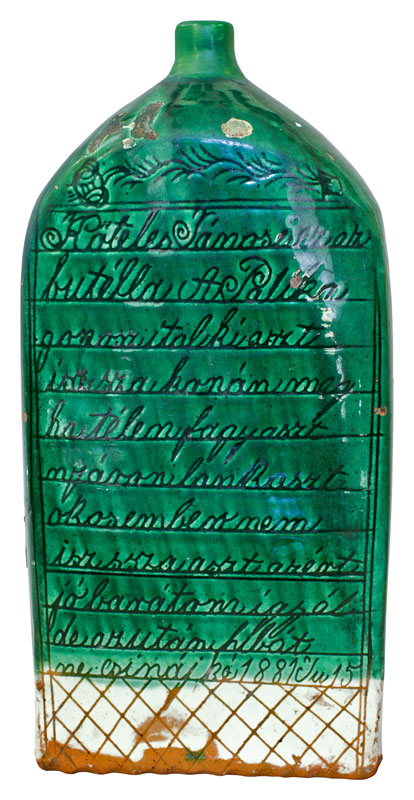 Köteles Jánosé ez az
butélla A Pálinka
gonosz ital ki aszt
iszsza korán meg
hal télen fagyaszt
nyáron lankaszt
okos ember nem
iszsza aszt azért
jó barátom igyál
de azután pl
ne csinálj 1881